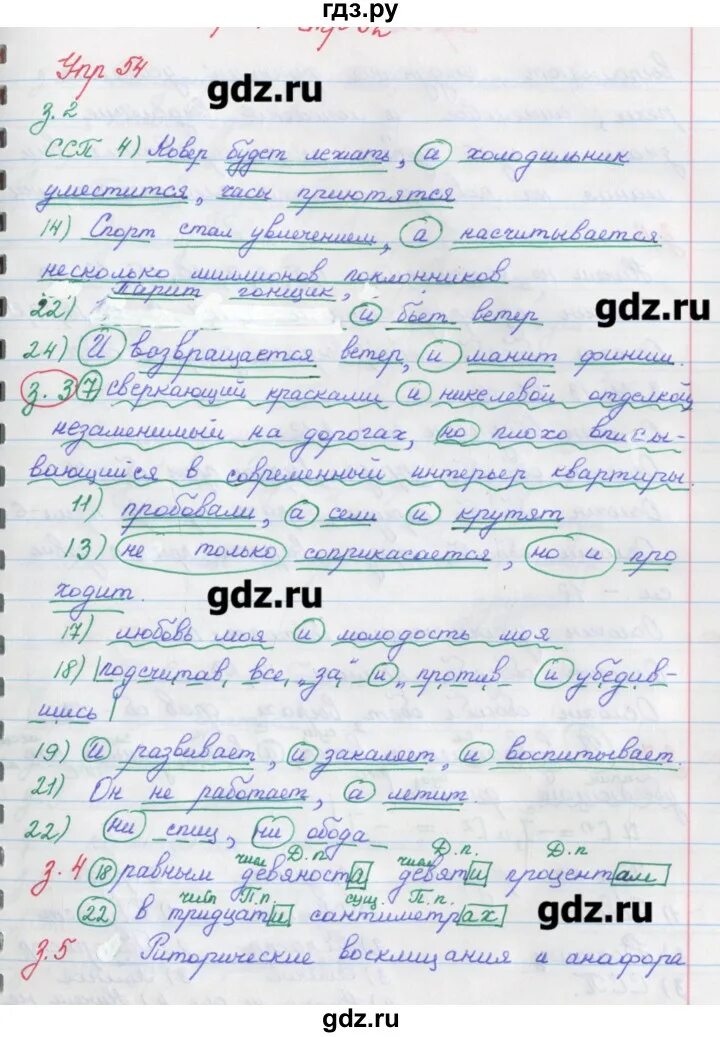 гдз.ру
Упр 54
gdz.ru
з.2
ССП 4) Ковер будет лежать, а холодильник
уместится, часы приютятся
14) Спорт стал увлечением, а насчитывается
несколько миллионов поклонников
Парит гонщик,
22) и бьет ветер
gdz.ru
24) И возвращается ветер, и манит финиш.
з.3 7 сверкающий красками и никелевой отделкой
незаменимый на дорогах, но плохо вписы-
вающийся в современный интерьер квартиры.
11) пробовали, а сели и крутят
13) не только соприкасается, но и про
ходит.
gdz.ru
17) любовь моя и молодость моя
18) подсчитав все „за“ и „против и убедив-
шись
19) и развивает, и закаляет, и воспитывает.
21) Он не работает, а летит.
22) ни спиц, ни обода
числ Д.п. числ Д.п. Д.п
з.4 18 равным девяноста девяти процентам
числ П.п. сущ. П.п.
22 в тридцати сантиметрах
gdz.ru
з.5 Риторические восклицания и анафора
gdz.ru